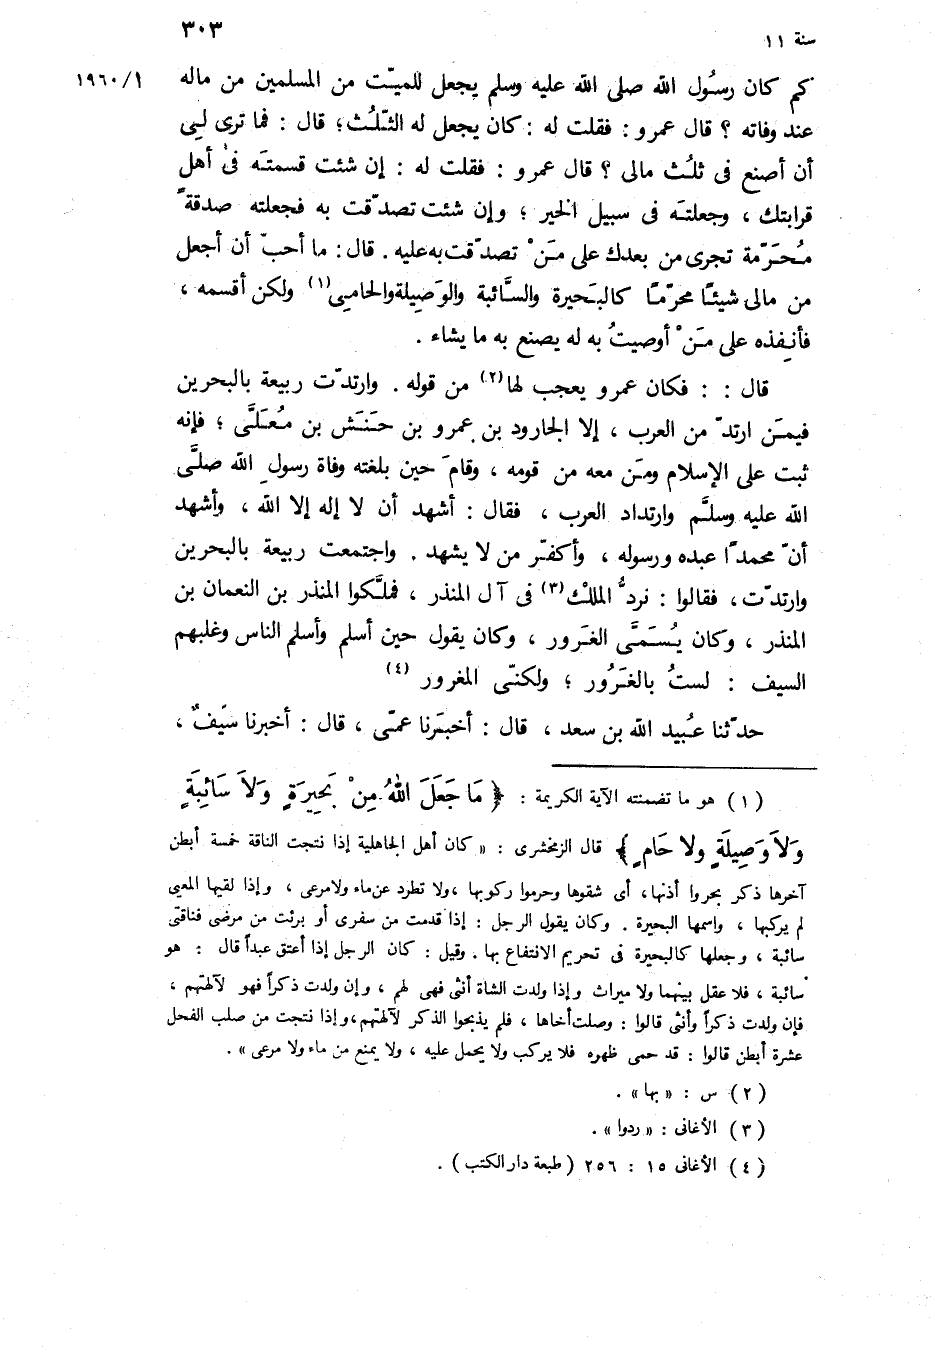 سنة ١١
٣٠٣
١/١٩٦٠
كم كان رسُول الله صلى الله عليه وسلم يجعل للميّت من المسلمين من ماله
عند وفاته ؟ قال عمرو : فقلت له : كان يجعل له الثّلُث؛ قال : فما ترى لى
أن أصنع فى ثلُث مالى ؟ قال عمرو : فقلت له : إن شئت قسمتَه فى أهل
قرابتك ، وجعلتَه فى سبيل الخير ؛ وإن شئت تصدّقت به فجعلته صدقةً
مُحَرّمة تجرى من بعدك على مَنْ تصدّقت به عليه . قال : ما أحبّ أن أجعل
من مالى شيئًا محرّمًا كالبَحيرة والسَّائبة والوَصِيلة والحامِى(١) ولكن أقسمه ،
فأنفِذه على مَنْ أوصيتُ به له يصنع به ما يشاء .
قال : : فكان عمرو يعجب لها(٢) من قوله . وارتدّت ربيعة بالبحرين
فيمَن ارتدّ من العرب ، إلا الجارود بن عمرو بن حَنَش بن مُعَلَّى ؛ فإنه
ثبت على الإسلام ومَن معه من قومه ، وقامَ حين بلغته وفاة رسول الله صلَّى
الله عليه وسلَّم وارتداد العرب ، فقال : أشهد أن لا إله إلا الله ، وأشهد
أنّ محمدًا عبده ورسوله ، وأكفّر من لا يشهد . واجتمعت ربيعة بالبحرين
وارتدّت ، فقالوا : نردُّ الملْك(٣) فى آل المنذر ، فملَّكوا المنذر بن النعمان بن
المنذر ، وكان يُسَمَّى الغَرور ، وكان يقول حين أسلم وأسلم الناس وغلبهم
السيف : لستُ بالغَرُور ؛ ولكنّى المغرور (٤)
حدّثنا عُبيد الله بن سعد ، قال : أخبَرنا عمّى ، قال : أخبرنا سَيفٌ ،
(١) هو ما تضمنته الآية الكريمة : ﴿ مَا جَعَلَ اللهُ مِنْ بَحِيرَةٍ وَلاَ سَائِبَةٍ
وَلاَ وَصِيلَةٍ ولا حَامٍ ﴾ قال الزمخشرى : « كان أهل الجاهلية إذا نتجت الناقة خمسة أبطن
آخرها ذكر بحروا أذنها، أى شقوها وحرموا ركوبها ، ولا تطرد عن ماء ولا مرعى ، وإذا لقيها المعيى
لم يركبها ، واسمها البحيرة . وكان يقول الرجل : إذا قدمت من سفرى أو برئت من مرضى فناقتى
سائبة ، وجعلها كالبحيرة فى تحريم الانتفاع بها . وقيل : كان الرجل إذا أعتق عبداً قال : هو
سائبة ، فلا عقل بينهما ولا ميراث وإذا ولدت الشاة أنثى فهى لهم ، وإن ولدت ذكراً فهو لآلهتهم ،
فإن ولدت ذكراً وأنثى قالوا : وصلت أخاها ، فلم يذبحوا الذكر لآلهتهم ، وإذا نتجت من صلب الفحل
عشرة أبطن قالوا : قد حمى ظهره فلا يركب ولا يحمل عليه ، ولا يمنع من ماء ولا مرعى » .
(٢) س : « بها » .
(٣) الأغانى : « ردوا » .
(٤) الأغانى ١٥ : ٢٥٦ (طبعة دار الكتب) .